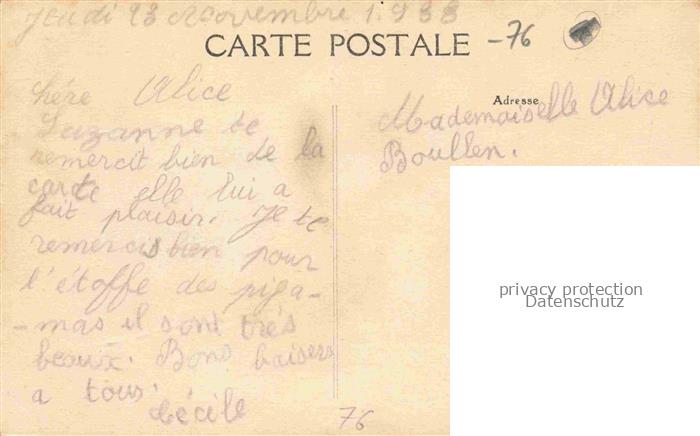 Jeudi 23 Novembre 1.933
CARTE POSTALE
-76
Adresse
hére Alice
Suzanne te
remercit bien de la
carte elle lui a
fait plaisir. Je te
remercis bien pour
l'étoffe des piga-
-mas il sont très
beaux. Bons baisers
a tous.
Cécile
76
Mademaiselle Alice
Boullen.
privacy protection
Datenschutz